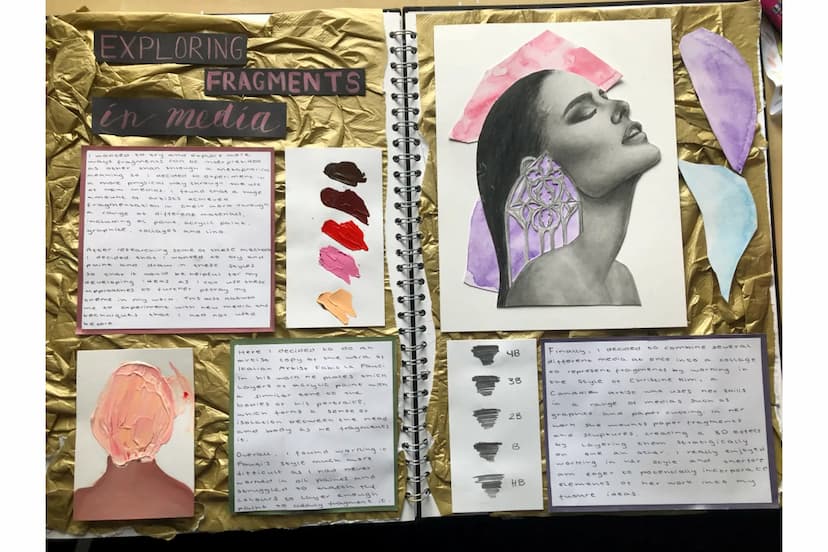 EXPLORING
FRAGMENTS
in media
I wanted to try and explore more
ways fragments can be interpreted
as other than through a metaphorical
meaning so I decided to experiment in
a more physical way through the use
of new medias. I found that a huge
amount of artists achieved
fragmentation in their work through
a range of different materials,
including oil paint, acrylic paint,
graphite, collages and lino.
After researching some of these methods
I decided that I wanted to try and
paint and draw in these styles
so that it would be helpful for my
developing ideas as I can use these
approaches to further portray my
theme in my work. This also allowed
me to experiment with new media and
techniques that I had not used
before.
Here I decided to do an
artist copy of the work of
Italian Artist Fabio La Fauci.
In his work he places thick
layers of acrylic paint with
a similar tone to the
bodies of his portraits,
which forms a sense of
isolation between the head
and body as he fragments
it.
Overall, I found working in
Fauci's style much more
difficult as I had never
worked in oil paints and
struggled to match the
colours to layer enough
paint to really fragment it.
4B
3B
2B
B
HB
Finally, I decided to combine several
different media at once into a collage
to represent fragments by working in
the style of Christine Kim, a
Canadian artist who uses her skills
in a range of medias such as
graphite and paper cutting. In her
work she mounts paper fragments
and sculptures, creating a 3D effect
by layering them strategically
on one another. I really enjoyed
working in her style and therefore
am eager to potentially incorporate
elements of her work into my
future ideas.